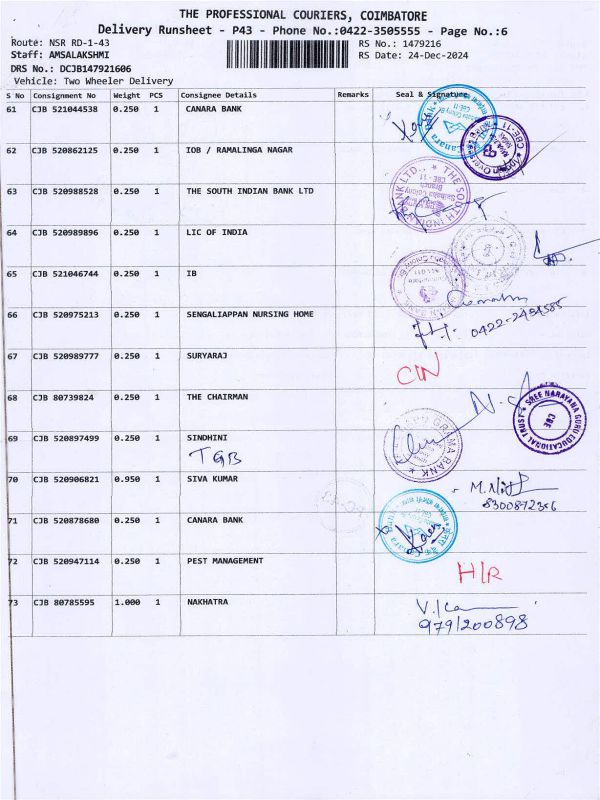 THE PROFESSIONAL COURIERS, COIMBATORE
Delivery Runsheet - P43 - Phone No.:0422-3505555 - Page No.:6
Route: NSR RD-1-43 RS No.: 1479216
Staff: AMSALAKSHMI RS Date: 24-Dec-2024
DRS No.: DCJB147921606
Vehicle: Two Wheeler Delivery
S No Consignment No Weight PCS Consignee Details Remarks Seal & Signature
61 CJB 521044538 0.250 1 CANARA BANK
62 CJB 520862125 0.250 1 IOB / RAMALINGA NAGAR
63 CJB 520988528 0.250 1 THE SOUTH INDIAN BANK LTD
64 CJB 520989896 0.250 1 LIC OF INDIA
65 CJB 521046744 0.250 1 IB
66 CJB 520975213 0.250 1 SENGALIAPPAN NURSING HOME
0422-2434585
67 CJB 520989777 0.250 1 SURYARAJ
C/N
68 CJB 80739824 0.250 1 THE CHAIRMAN
SREE NARAYANA GURU EDUCATIONAL TRUST CBE
69 CJB 520897499 0.250 1 SINDHINI
TGB
70 CJB 520906821 0.950 1 SIVA KUMAR
8300872356
71 CJB 520878680 0.250 1 CANARA BANK
72 CJB 520947114 0.250 1 PEST MANAGEMENT
H/R
73 CJB 80785595 1.000 1 NAKHATRA
9791200898